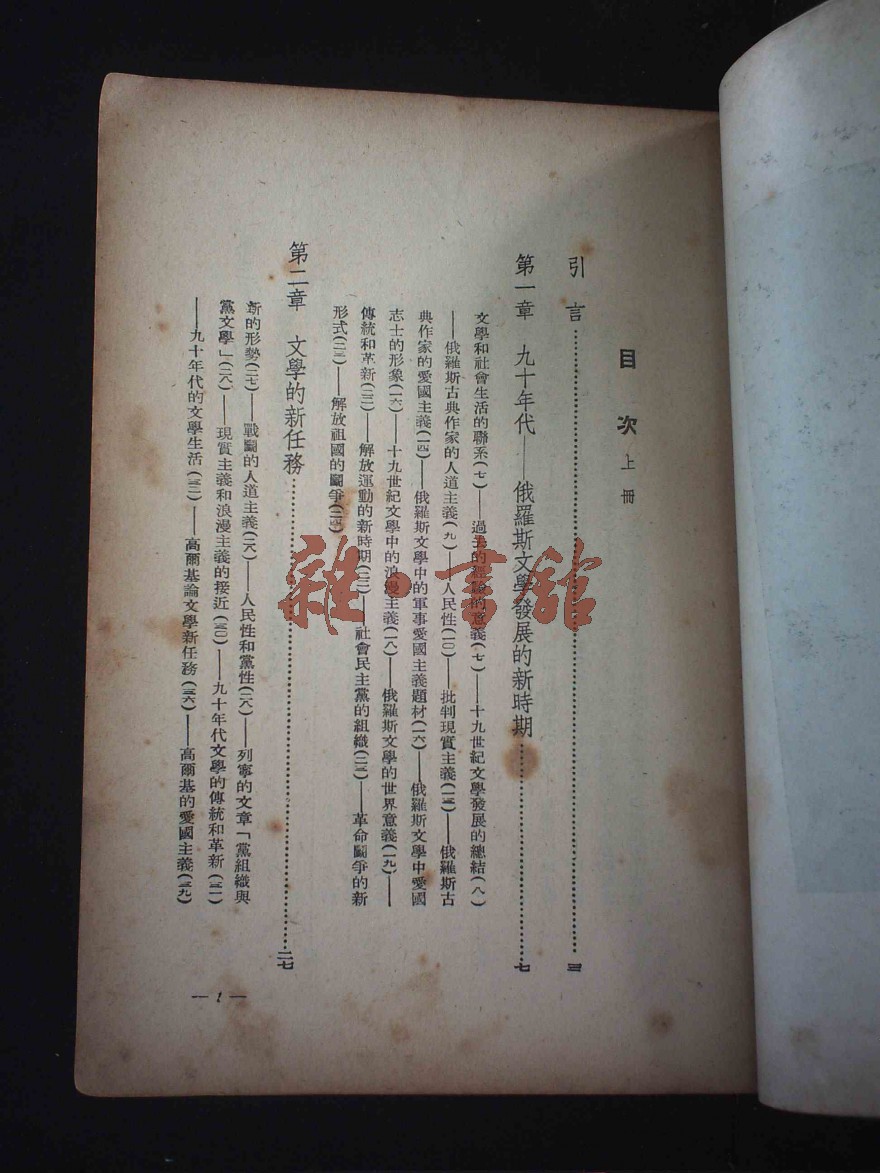 目次 上冊
引言……三
第一章 九十年代——俄羅斯文學發展的新時期……七
文學和社會生活的聯系(七)——過去的經驗的意義(七)——十九世紀文學發展的總結(八)
——俄羅斯古典作家的人道主義(九)——人民性(一〇)——批判現實主義(一三)——俄羅斯古
典作家的愛國主義(一四)——俄羅斯文學中的軍事愛國主義題材(一六)——俄羅斯文學中愛國
志士的形象(一六)——十九世紀文學中的浪漫主義(一八)——俄羅斯文學的世界意義(一九)——
傳統和革新(二二)——解放運動的新時期(二三)——社會民主黨的組織(二三)——革命鬭爭的新
形式(二三)——解放祖國的鬭爭(二四)
第二章 文學的新任務……二七
新的形勢(二七)——戰鬭的人道主義(二六)——人民性和黨性(二八)——列寧的文章「黨組織與
黨文學」(二八)——現實主義和浪漫主義的接近(三〇)——九十年代文學的傳統和革新(三一)
——九十年代的文學生活(三二)——高爾基論文學新任務(三六)——高爾基的愛國主義(三九)
— 1 —
雜·書舘